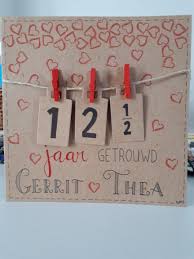 1 2 1/2
jaar GETROUWD
GERRIT ♡ THEA